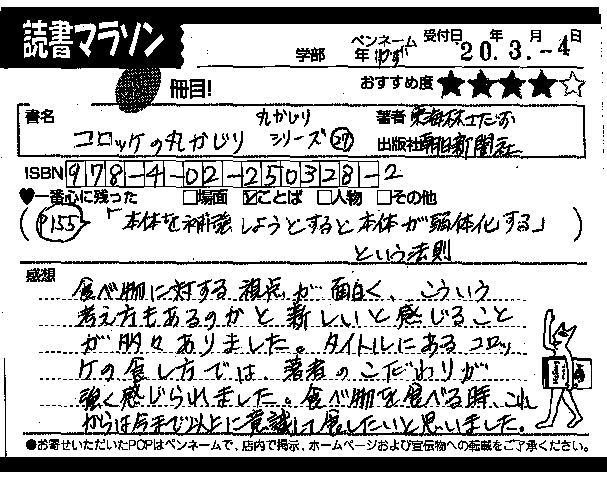 読書マラソン
冊目!
学部 年 ペンネーム
受付日 20年3月-4日
おすすめ度 ★★★★☆
書名 コロッケの丸かじり 丸かじりシリーズ㉗
著者 東海林さだお
出版社 朝日新聞社
ISBN 978-4-02-250328-2
♥一番心に残った □場面 ☑ことば □人物 □その他
(P155 「本体を補強しようとすると本体が弱体化する」
という法則)
感想
食べ物に対する視点が面白く、こういう
考え方もあるのかと新しいと感じること
が多々ありました。タイトルにあるコロッ
ケの食し方では、著者のこだわりが
強く感じられました。食べ物を食べる時、これ
からは今まで以上に意識して食したいと思いました。
●お寄せいただいたPOPはペンネームで、店内で掲示、ホームページおよび宣伝物への転載をご了承ください。